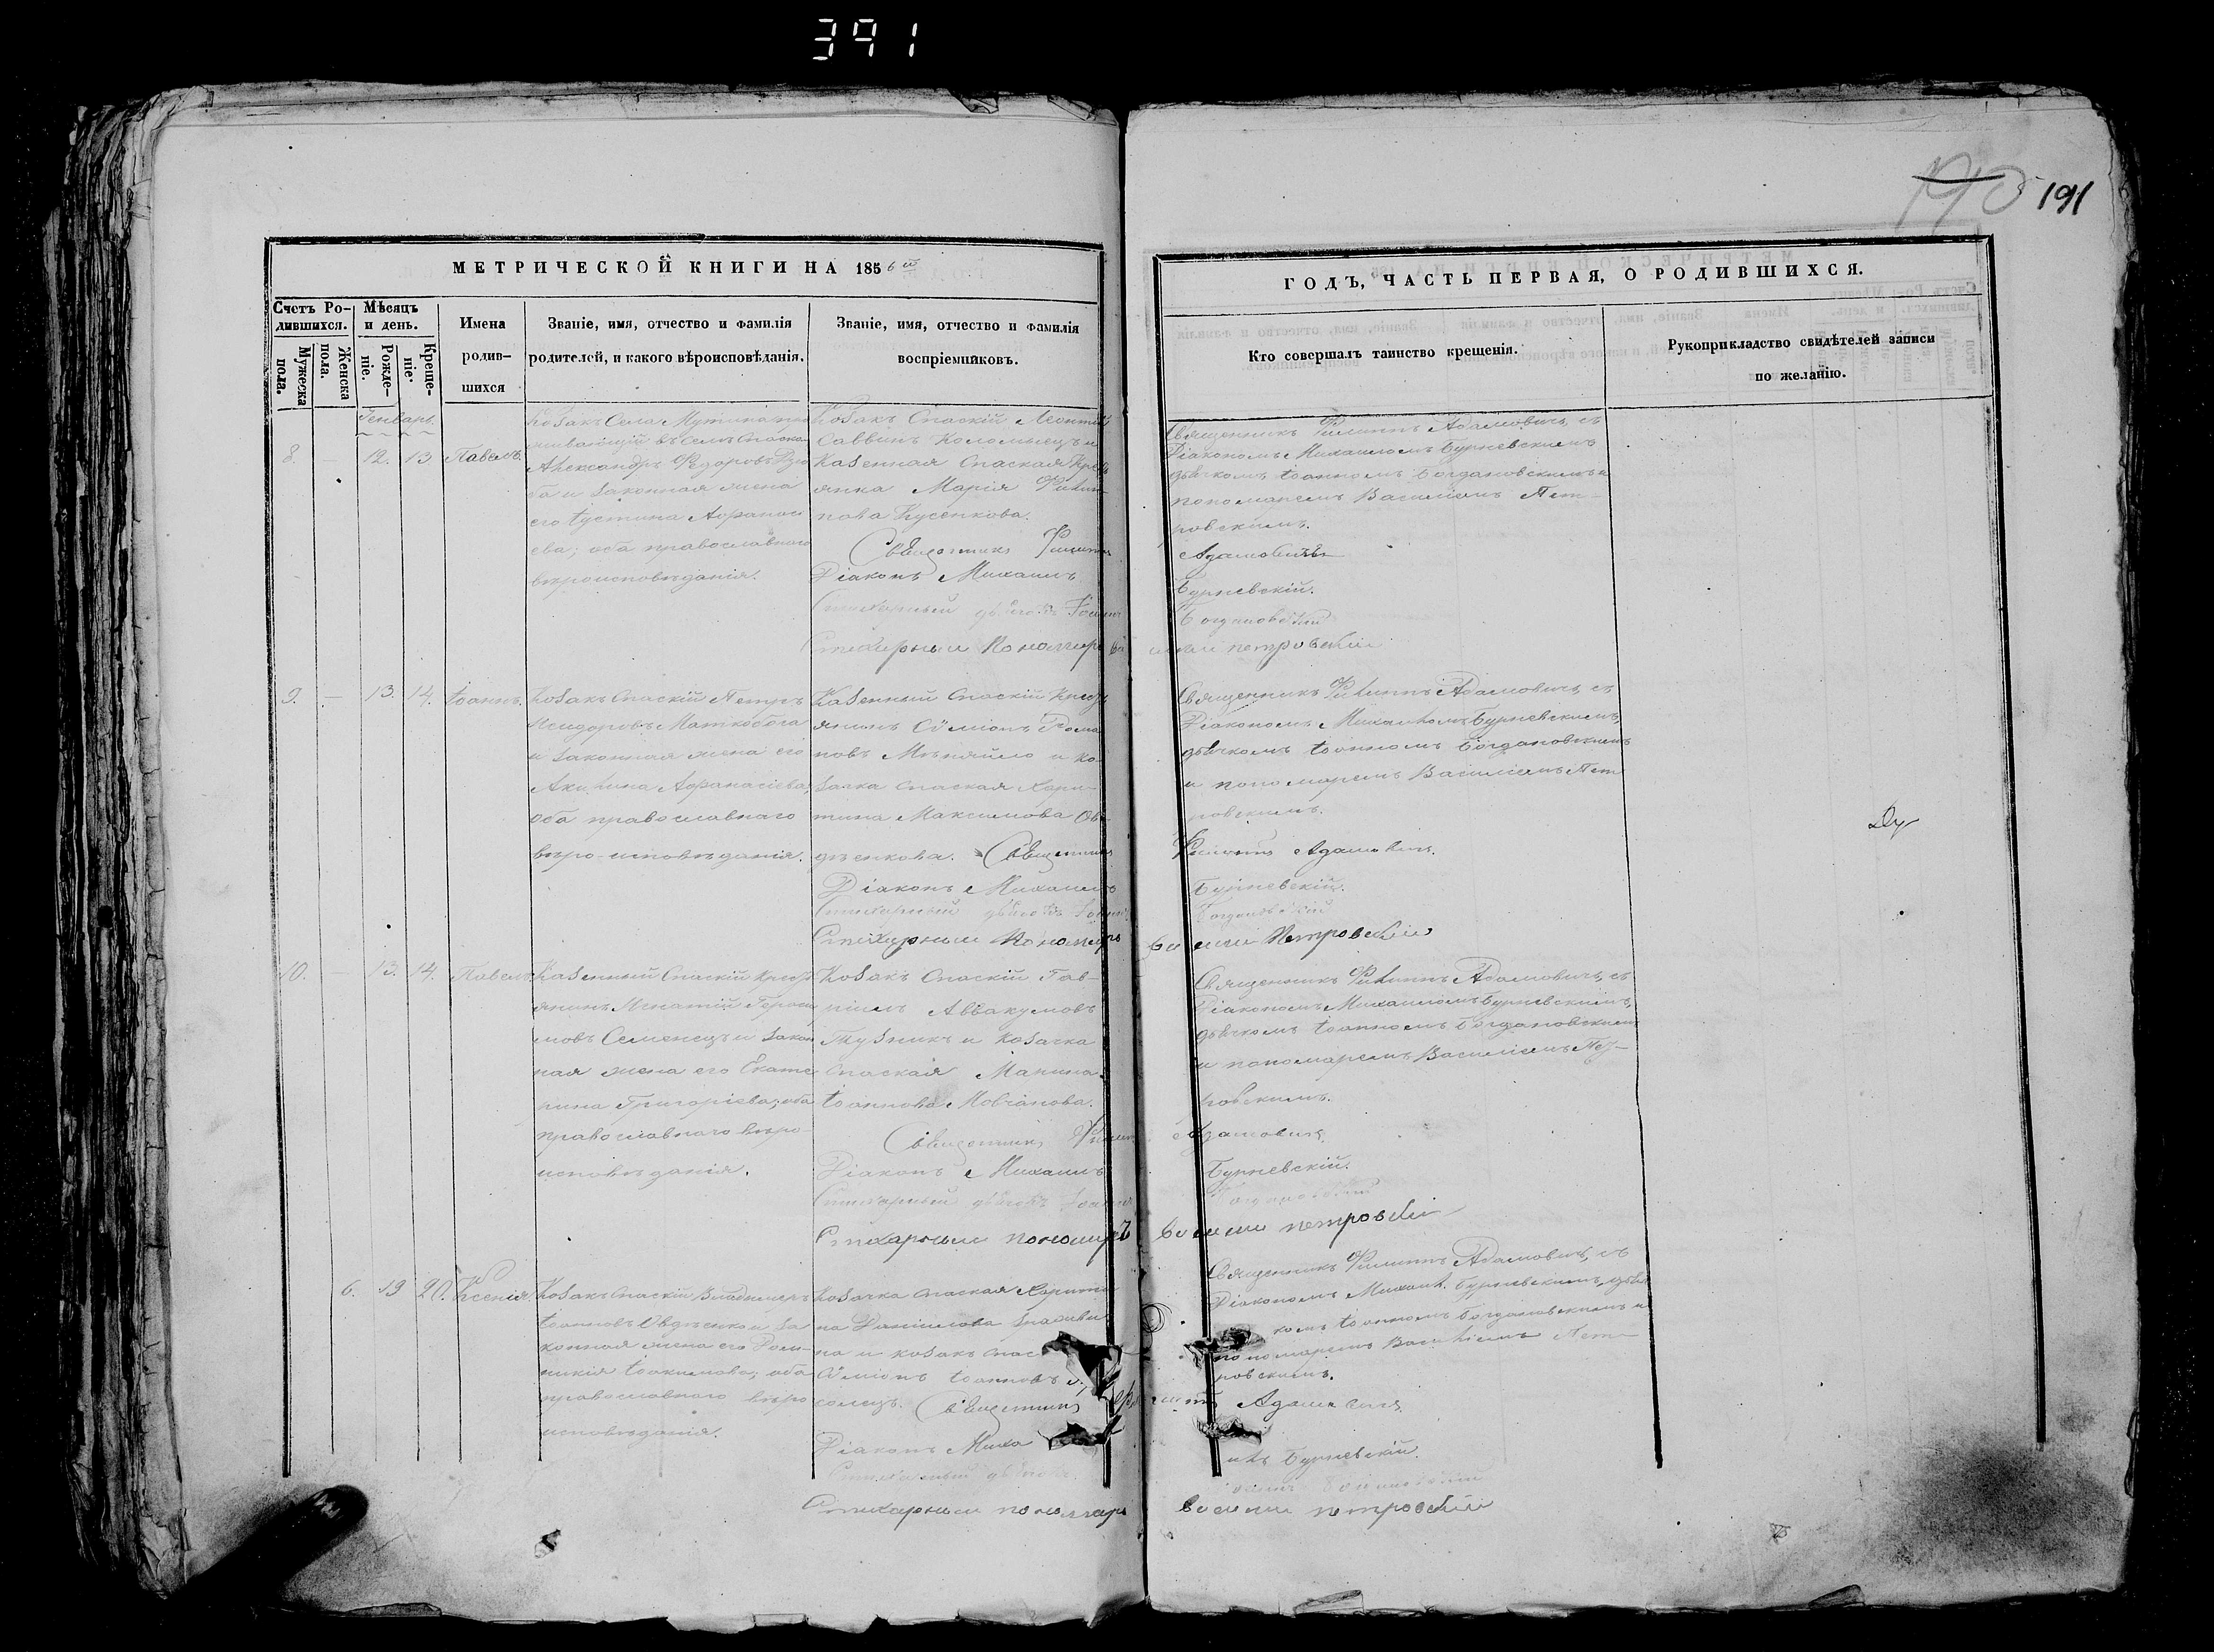 391
190 191
МЕТРИЧЕСКОЙ КНИГИ НА 1856й
Счетъ Ро-
дившихся.
Мужеска
пола.
Женска
пола.
Мѣсяцъ
и день.
Рожде-
ніе.
Креще-
ніе.
Имена
родив-
шихся
Званіе, имя, отчество и фамилія
родителей, и какого вѣроисповѣданія.
Званіе, имя, отчество и фамилія
воспріемниковъ.
ГОДЪ, ЧАСТЬ ПЕРВАЯ, О РОДИВШИХСЯ.
Кто совершалъ таинство крещенія.
Рукоприкладство свидѣтелей записи
по желанію.
Генварь.
8. — 12. 13 Павелъ.
Козакъ Села Мутина про
живающій въ селѣ Спаско
Александръ Федоровъ
и законная жена
его Іустина Афанасі
ева; оба православнаго
вѣроисповѣданія.
Козакъ Спаскій Леонтій
Саввинъ Коломыецъ и
Казенная Спаская Кресть
янка Марія Филип-
пова Кусенкова.
Священникъ Филиппъ
Діаконъ Михаилъ
Стихарный дьячокъ Іоаннъ
Стихарный Пономарь Ва
Священникъ Филиппъ Адамовичъ, съ
Діакономъ Михаиломъ Бурневскимъ
дьячкомъ Іоанномъ Богдановскимъ и
пономаремъ Василіемъ Пет-
ровскимъ.
Адамовичъ
Бурневскій.
Богдановскій
силій Петровскій
9. — 13. 14. Іоаннъ.
Козакъ Спаскій Петръ
Исидоровъ Маткобога
и законная жена его
Акилина Афанасіева;
оба православнаго
вѣро-исповѣданія.
Казенный Спаскій Кресть
янинъ Сѵміонъ Рома
новъ Мѣняйло и ко-
зачка Спаская Хари-
тина Максимова Ов-
дѣенкова. Священникъ
Діаконъ Михаилъ
Стихарный дьячокъ Іоаннъ
Стихарный Пономарь
Священникъ Филиппъ Адамовичъ, съ
Діакономъ Михаиломъ Бурневскимъ,
дьячкомъ Іоанномъ Богдановскимъ
и пономаремъ Василіемъ Пет
ровскимъ.
Филиппъ Адамовичъ.
Бурневскій.
Богдановскій
Василій Петровскій
10. — 13. 14. Павелъ.
Казенный Спаскій Кресть
янинъ Игнатій Гераси
мовъ Семенецъ и закон
ная жена его Екате
рина Григоріева; оба
православнаго вѣро-
исповѣданія.
Козакъ Спаскій Гав-
ріилъ Аввакумовъ
Тузникъ и козачка
Спаская Марина
Іоаннова Мовчанова.
Священникъ Филипп
Діаконъ Михаилъ
Стихарный дьячокъ Іоаннъ
Стихарный пономарь
Священникъ Филиппъ Адамовичъ, съ
Діакономъ Михаиломъ Бурневскимъ,
дьячкомъ Іоанномъ Богдановскимъ
и пономаремъ Василіемъ Пет-
ровскимъ.
Адамовичъ
Бурневскій.
Богдановскій
Василій Петровскій
6. 19 20. Ксенія.
Козакъ Спаскій Владимеръ
Іоанновъ Овдѣенко и за
конная жена его Дом-
никія Іоакимова; оба
православнаго вѣро
исповѣданія.
Козачка Спаская Харити
на Даніилова
на и козакъ Спас
Сѵміонъ Іоанновъ
Священникъ
Діаконъ Миха
Стихарный дьячокъ
Стихарный пономарь
Священникъ Филиппъ Адамовичъ, съ
Діакономъ Михаил. Бурневскимъ, дьяч
комъ Іоанномъ Богдановскимъ и
пономаремъ Василіемъ Пет-
ровскимъ.
Адамовичъ.
илъ Бурневскій.
Василій Петровскій